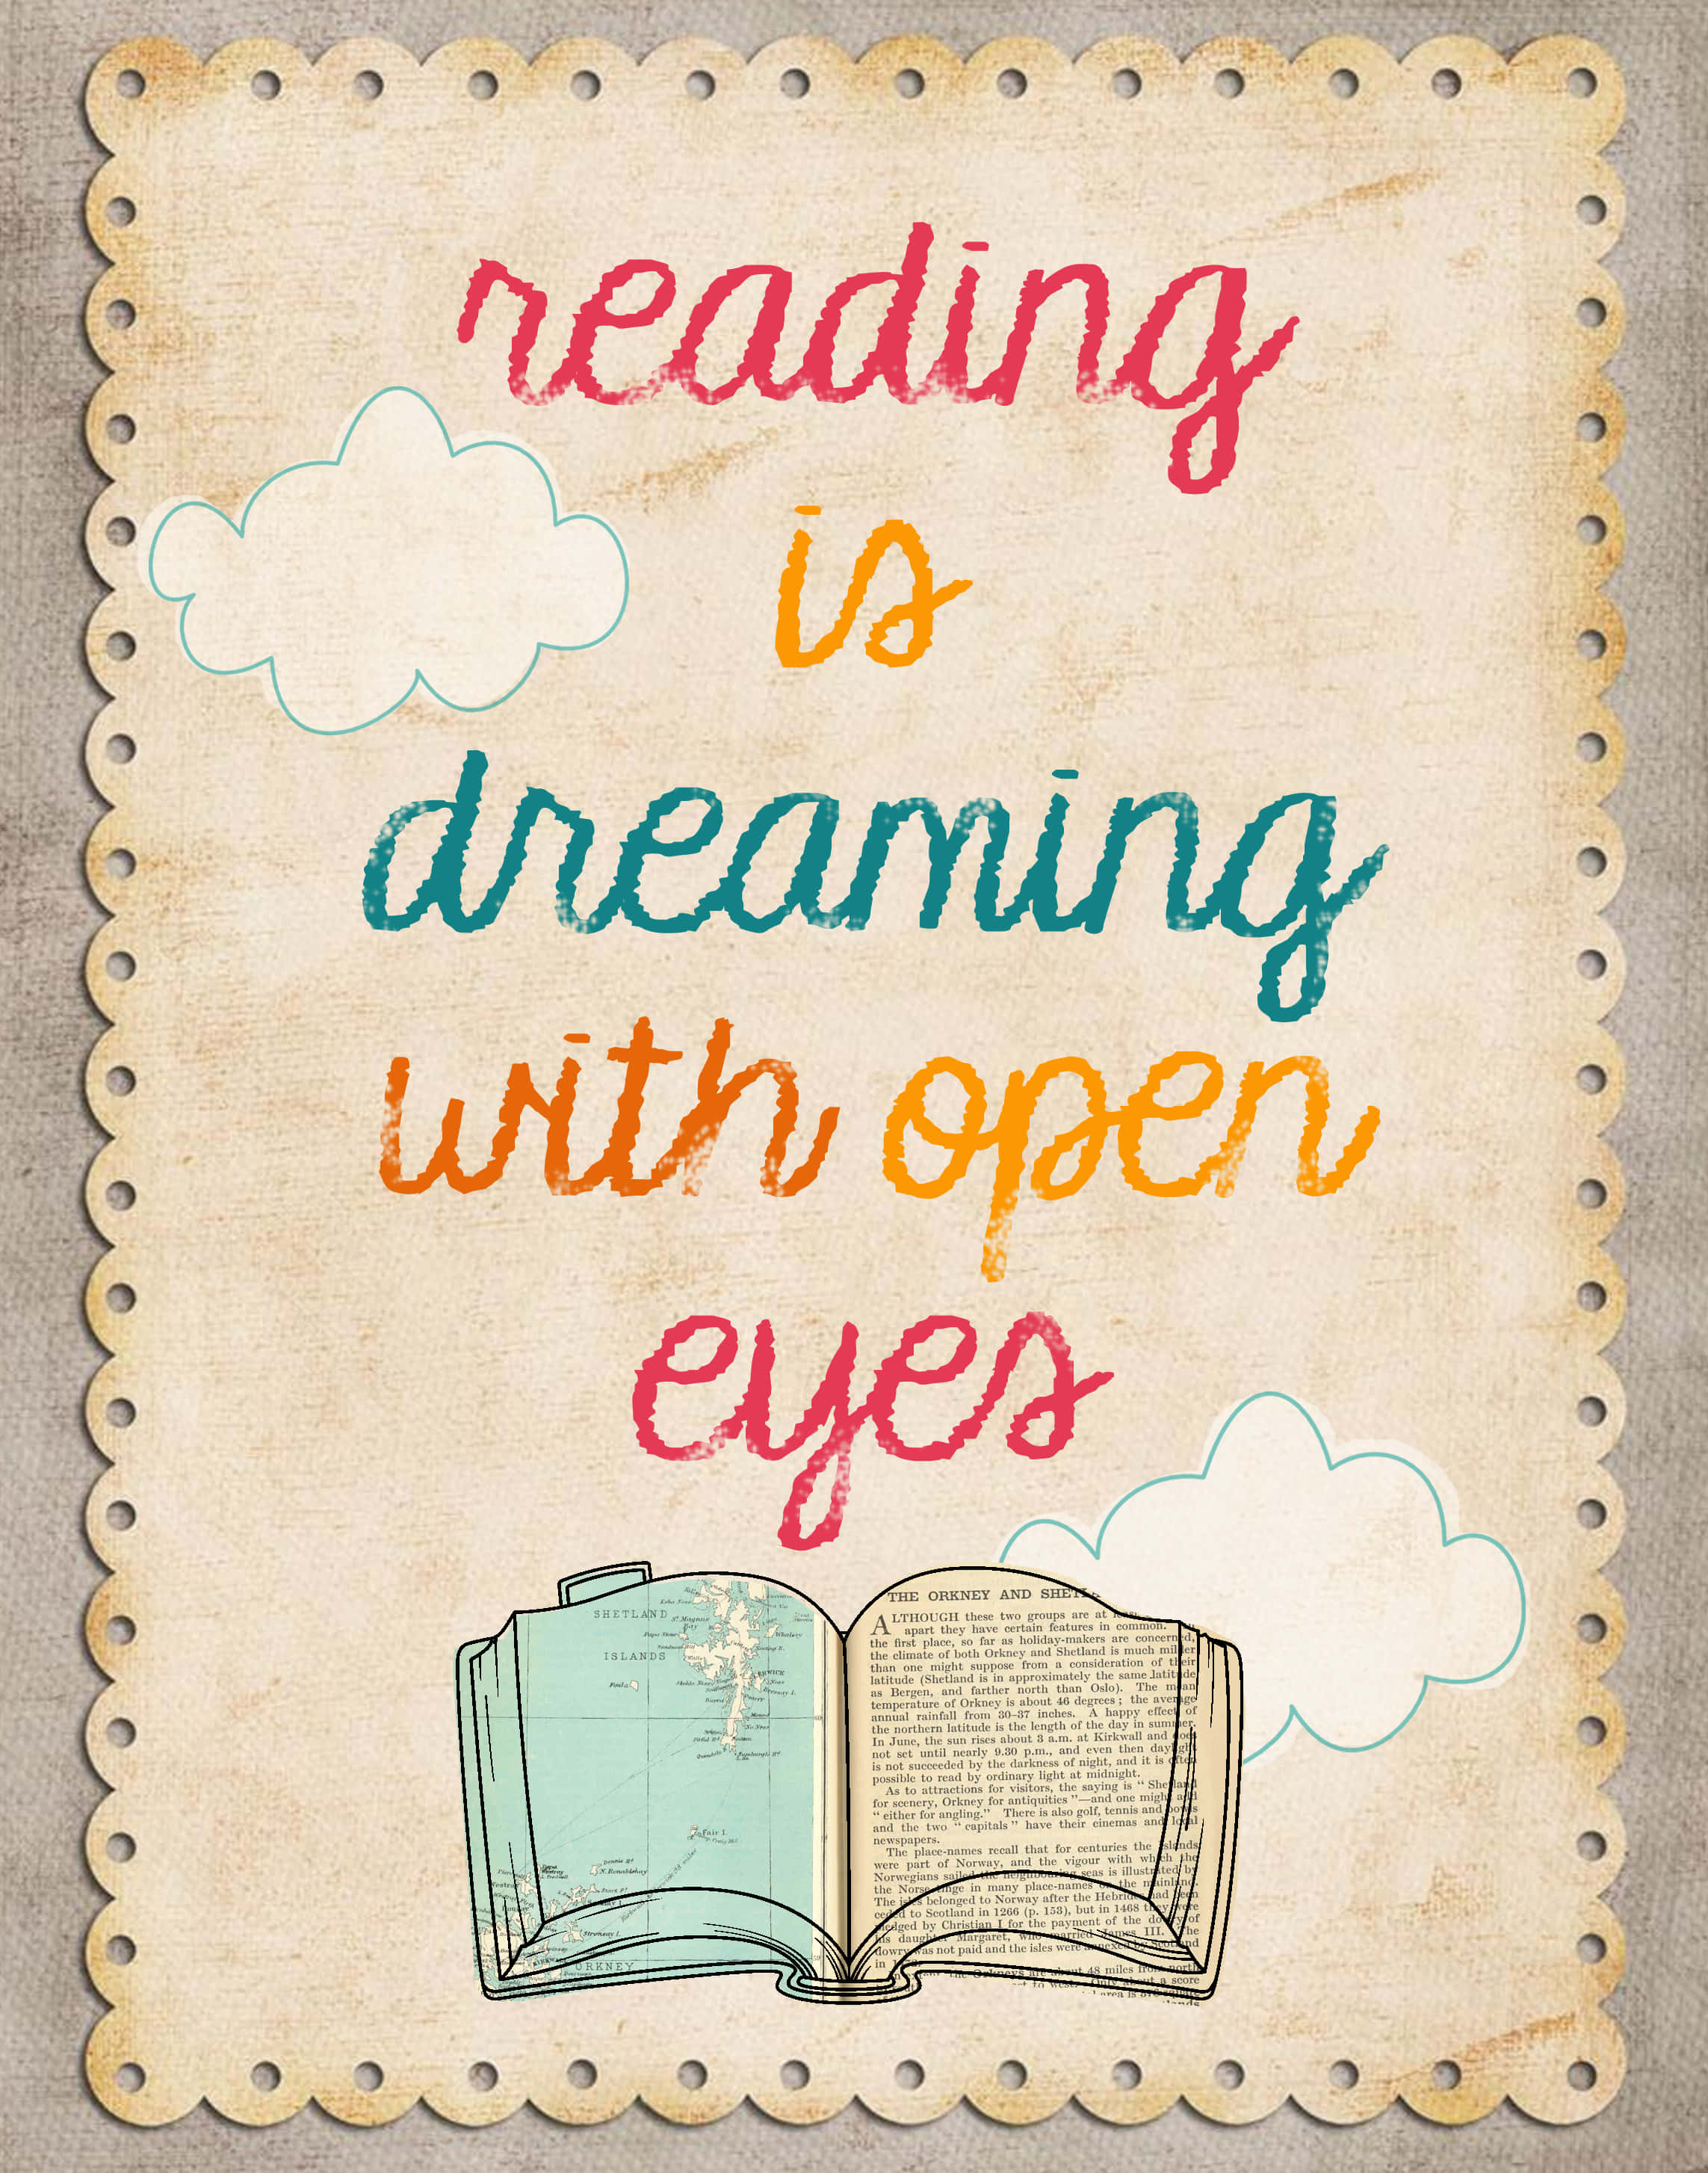 reading
is
dreaming
with open
eyes
SHETLAND
ISLANDS
Foula
Fair I.
N. Ronaldshay
Stronsay I.
ORKNEY
THE ORKNEY AND
ALTHOUGH these two groups are at
apart they have certain features in common.
the first place, so far as holiday-makers are concerned,
the climate of both Orkney and Shetland is much milder
than one might suppose from a consideration of their
latitude (Shetland is in approximately the same latitude
as Bergen, and farther north than Oslo). The mean
temperature of Orkney is about 46 degrees; the average
annual rainfall from 30–37 inches. A happy effect of
the northern latitude is the length of the day in summer.
In June, the sun rises about 3 a.m. at Kirkwall and does
not set until nearly 9.30 p.m., and even then daylight
is not succeeded by the darkness of night, and it is often
possible to read by ordinary light at midnight.
As to attractions for visitors, the saying is “ Shetland
for scenery, Orkney for antiquities ”—and one might add
“ either for angling.” There is also golf, tennis and bowls
and the two “ capitals ” have their cinemas and local
newspapers.
The place-names recall that for centuries the islands
were part of Norway, and the vigour with which the
Norwegians sailed the neighbouring seas is illustrated by
the Norse tinge in many place-names on the mainland.
The isles belonged to Norway after the Hebrides had been
ceded to Scotland in 1266 (p. 153), but in 1468 they were
pledged by Christian I for the payment of the dowry of
his daughter Margaret, who married James III. The
dowry was not paid and the isles were annexed by Scotland
in
the Orkneys are about 48 miles from north
to west. Only about a score
area is